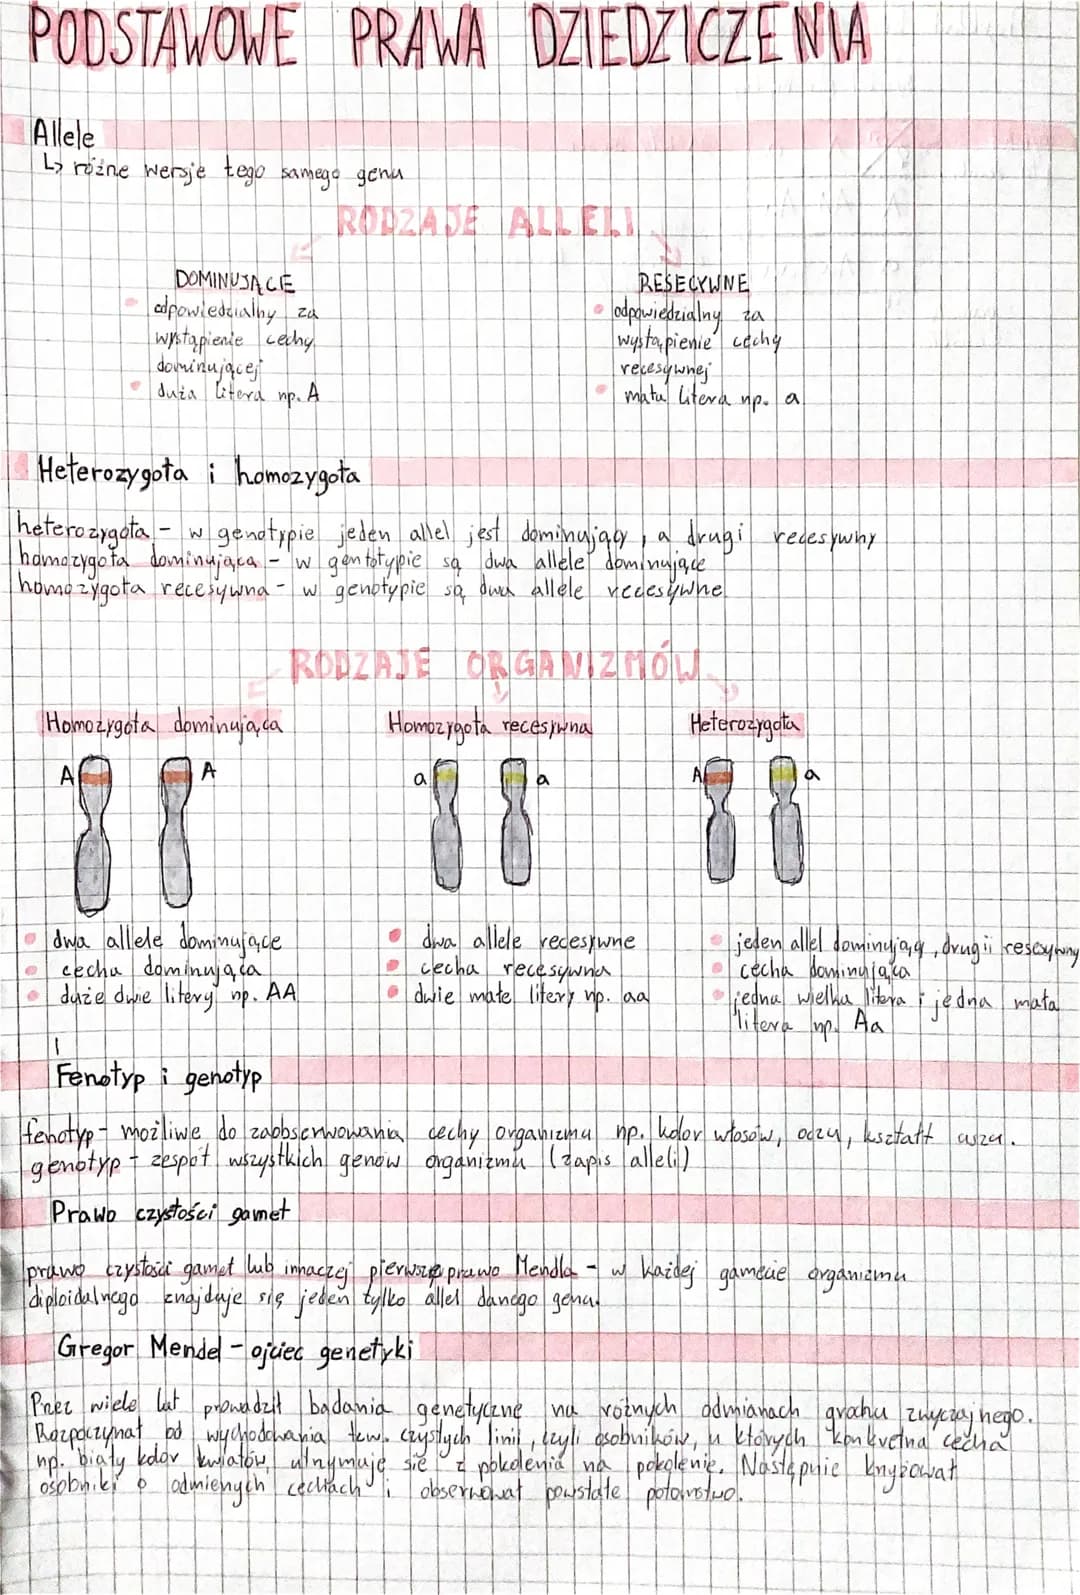 PODSTAWOWE PRAWA DZIEDZICZENIA
Allele
↳ różne wersje tego samego genu
RODZAJE ALLELI
DOMINUJĄCE
• odpowiedzialny za
wystąpienie cechy
dominującej
• duża litera np. A
RESECYWNE
• odpowiedzialny za
wystąpienie cechy
recesywnej
• mała litera np. a
Heterozygota i homozygota
heterozygota - w genotypie jeden allel jest dominujący, a drugi recesywny
homozygota dominująca - w gentotypie są dwa allele dominujące
homozygota recesywna - w genotypie są dwa allele recesywne
RODZAJE ORGANIZMÓW
Homozygota dominująca
A A
• dwa allele dominujące
• cecha dominująca
• duże dwie litery np. AA
Homozygota recesywna
a a
• dwa allele recesywne
• cecha recesywna
• dwie małe litery np. aa
Heterozygota
A a
• jeden allel dominujący, drugii resesywny
• cecha dominująca
• jedna wielka litera i jedna mała
litera np. Aa
Fenotyp i genotyp
fenotyp - możliwe do zaobserwowania cechy organizmu np. kolor włosów, oczu, kształt uszu.
genotyp - zespół wszystkich genów organizmu (zapis alleli)
Prawo czystości gamet
prawo czystości gamet lub innaczej pierwsze prawo Mendla - w każdej gamecie organizmu
diploidalnego znajduje się jeden tylko allel danego genu.
Gregor Mendel - ojciec genetyki
Przez wiele lat prowadził badania genetyczne na różnych odmianach grochu zwyczajnego.
Rozpoczynał od wychodowania tzw. czystych linii, czyli osobników, u których konkretna cecha
np. biały kolor kwiatów, utrzymuje się z pokolenia na pokolenie. Następnie krzyżował
osobniki o odmienych cechach i obserwował powstałe potomstwo.